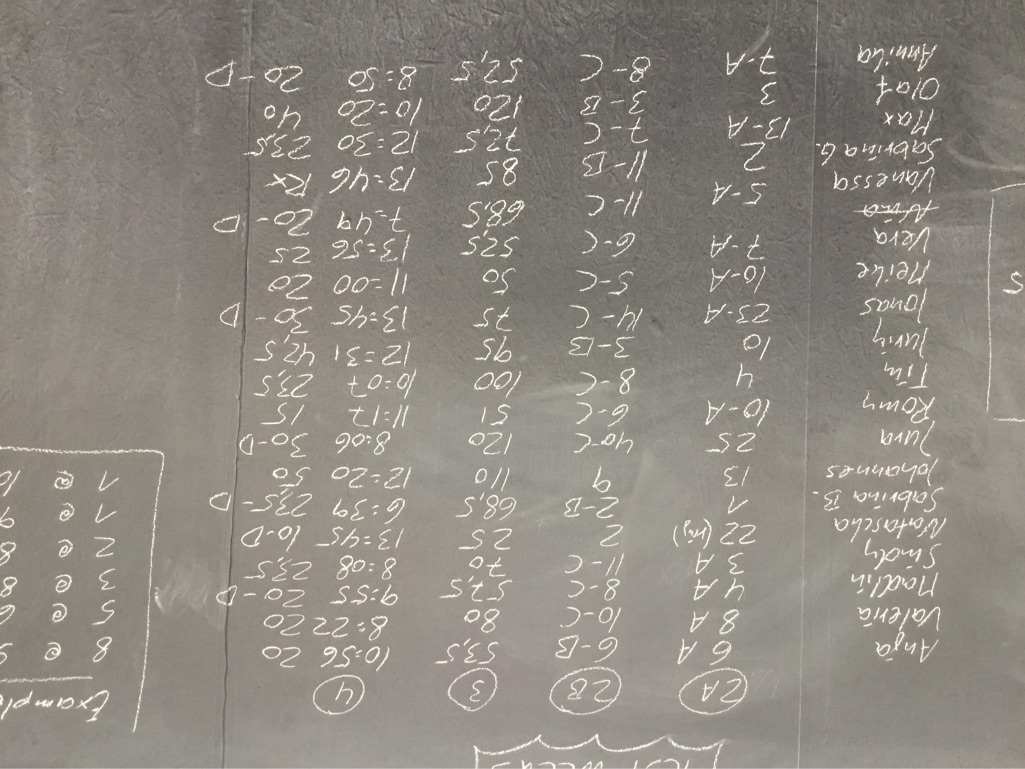 TEST WEEK
2A 2B 3 4
Anja 6 A 6-B 53,5 10:56 20
Valeria 8 A 10-C 80 8:22 20
Madlin 4 A 8-C 57,5 9:55 20-D
Sindy 3 A 11-C 70 8:08 23,5
Natascha 22 2 25 13:45 10-D
Sabrina B. 1 2-B 68,5 6:39 23,5-D
Johannes 13 9 110 12:20 50
Jura 25 40-C 120 8:06 30-D
Romy 10-A 6-C 51 11:17 15
Tim 4 8-C 100 10:07 23,5
Juriy 10 3-B 95 12:31 42,5
Jonas 23-A 14-C 75 13:45 30-D
Meike 10-A 5-C 50 11:00 20
Vera 7-A 6-C 52,5 13:56 25
Nina
Vanessa 5-A 11-C 68,5 7:49 20-D
Sabrina G. 2 11-B 85 13:46 Rx
Max 13-A 7-C 72,5 12:30 23,5
Olaf 3 3-B 120 10:20 40
Annika 7-A 8-C 52,5 8:50 20-D
Exampl
8 @
5 @ 6
3 @ 8
2 @ 8
1 @ 9
1 @ 10
S